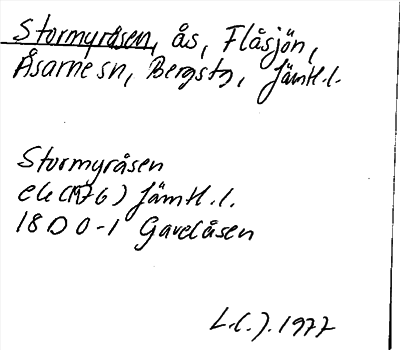 Stormyråsen, ås, Flåsjön,
Åsarne sn, Bergstg, Jämtl.l.
Stormyråsen
ek (1976) Jämtl.l.
18D 0-1 Gavelåsen
L.C.J. 1977